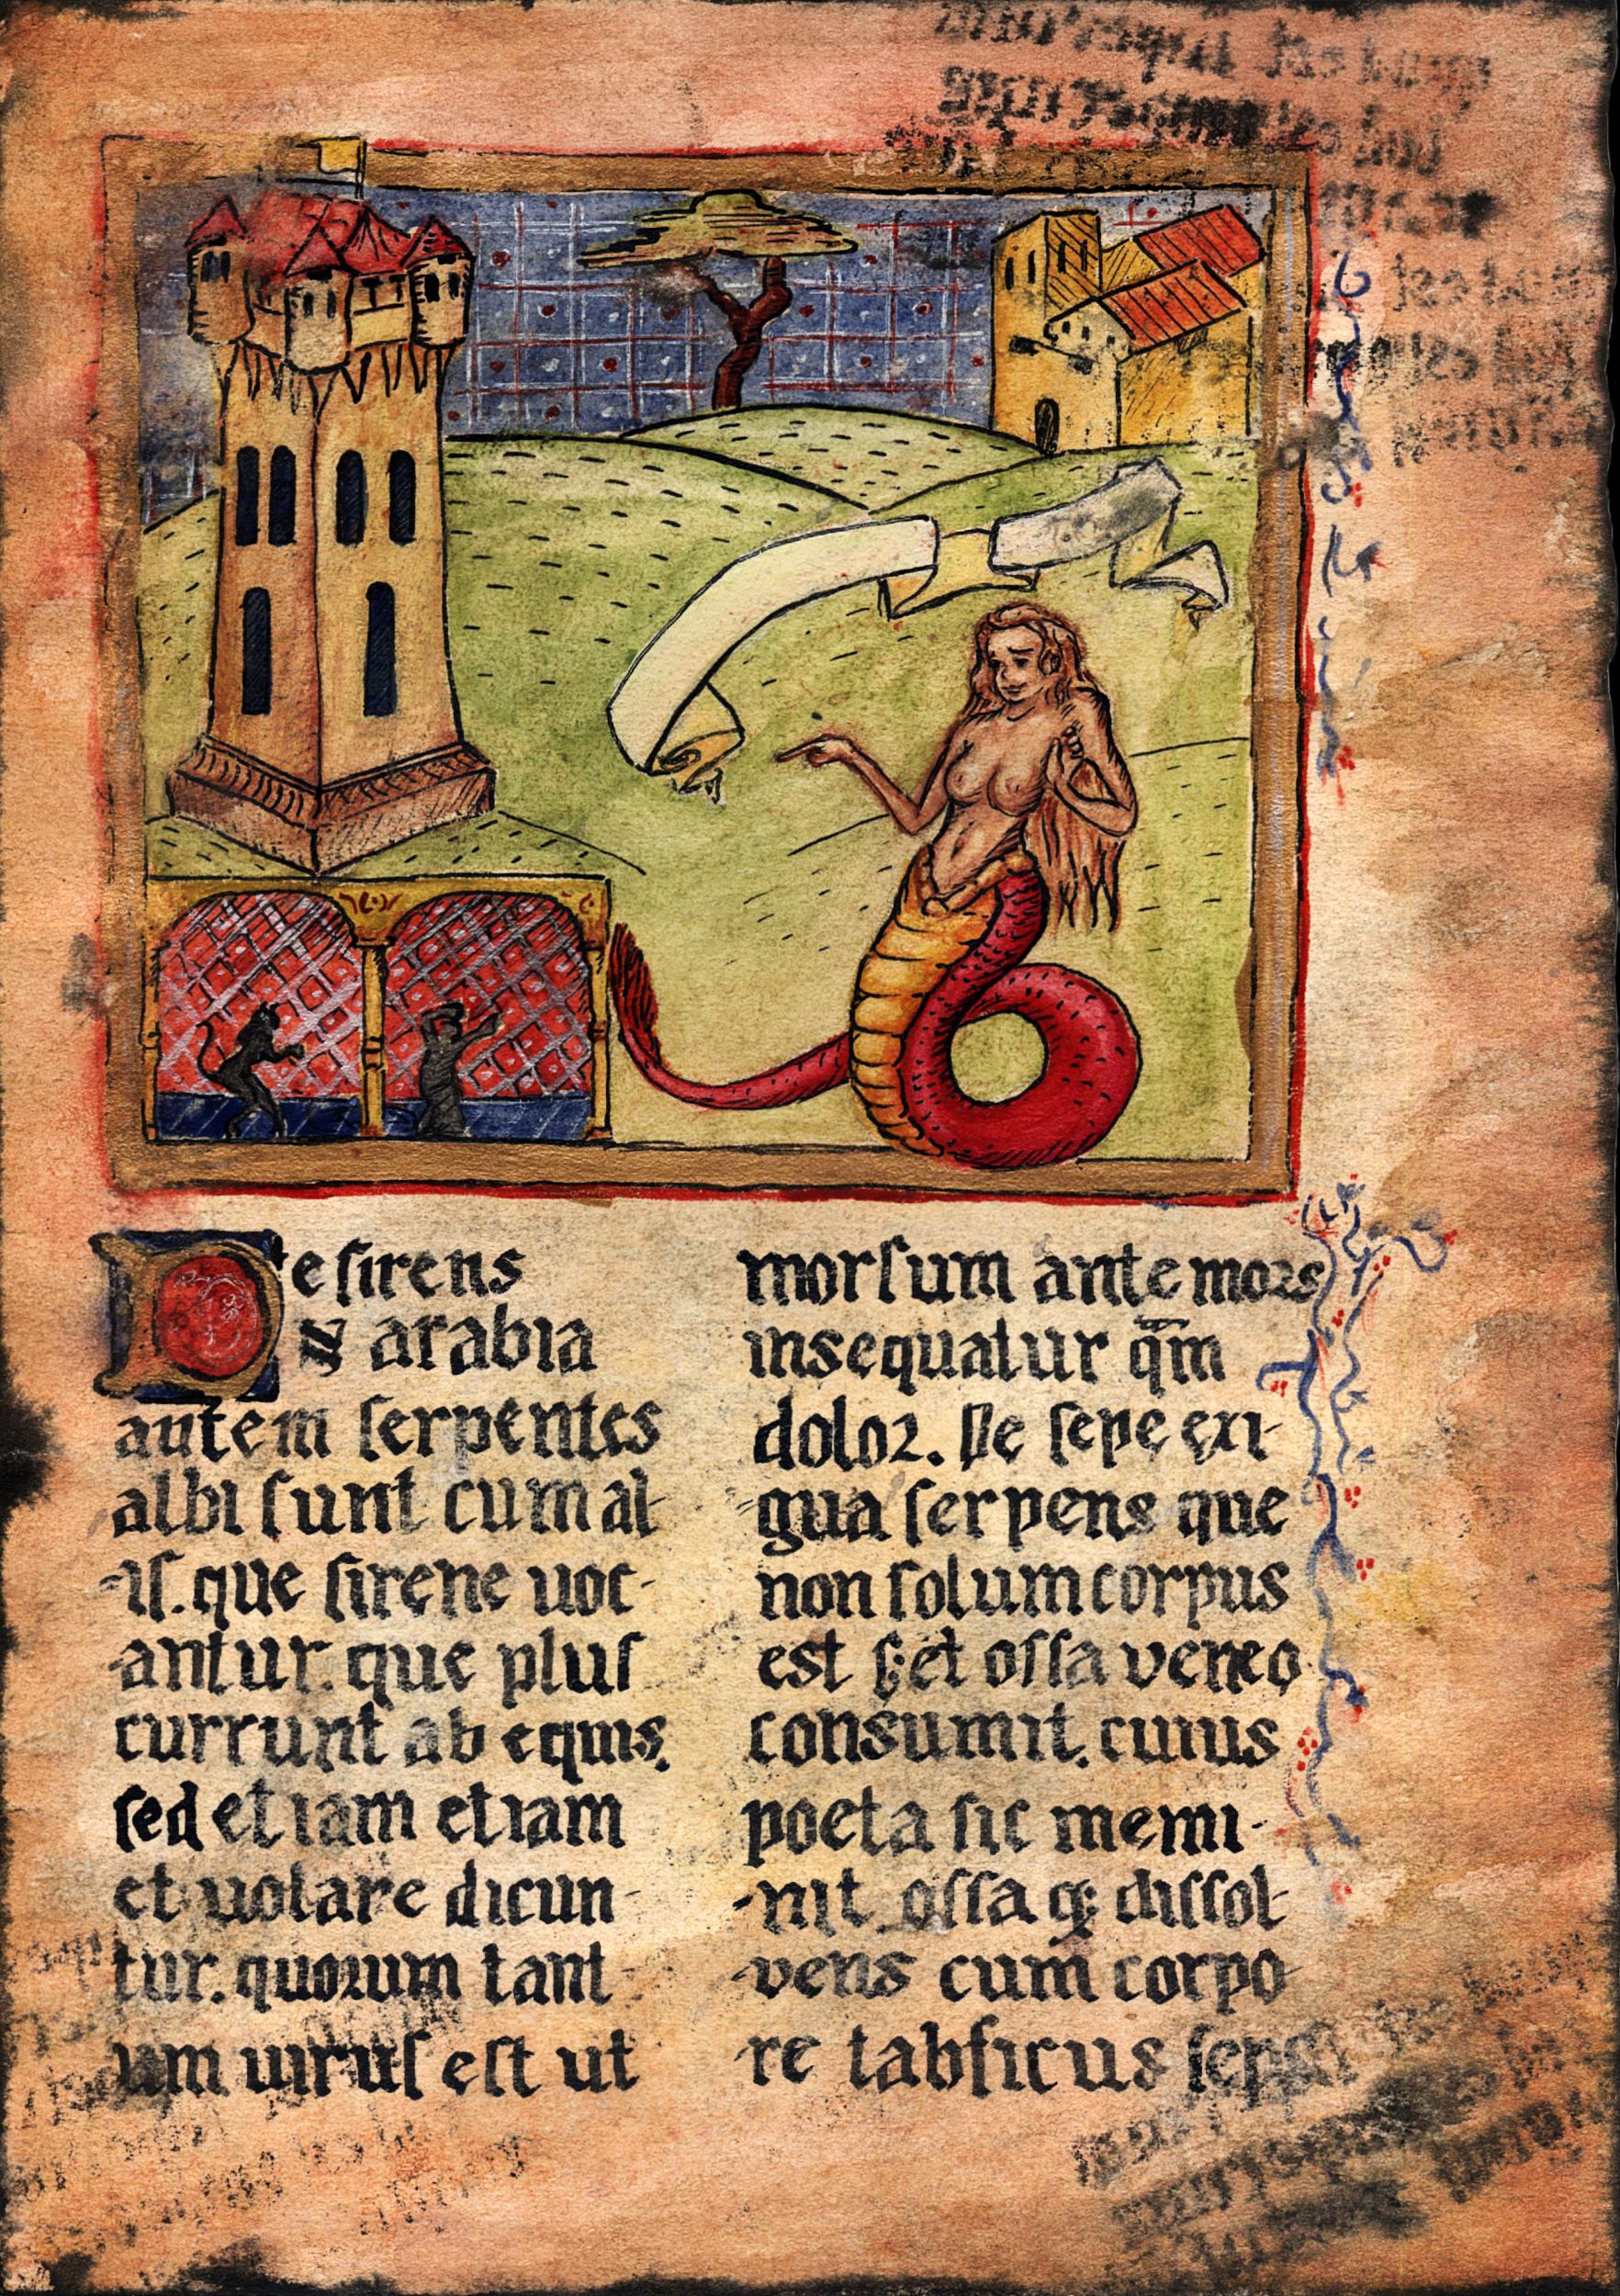 De sirens
IN arabia
autem serpentes
albi sunt cum al-
-is. que sirene uoc-
-antur. que plus
currunt ab equis.
sed etiam etiam
et uolare dicun-
tur. quorum tant-
um uirus est ut
morsum ante mors
insequatur q̄m
dolor. De sepe exi-
-gua serpens que
non solum corpus
est s; et ossa veneo
consumit. cuius
poeta sic memi-
-nit ossa q; dissol-
-vens cum corpo-
-re tabficus seps